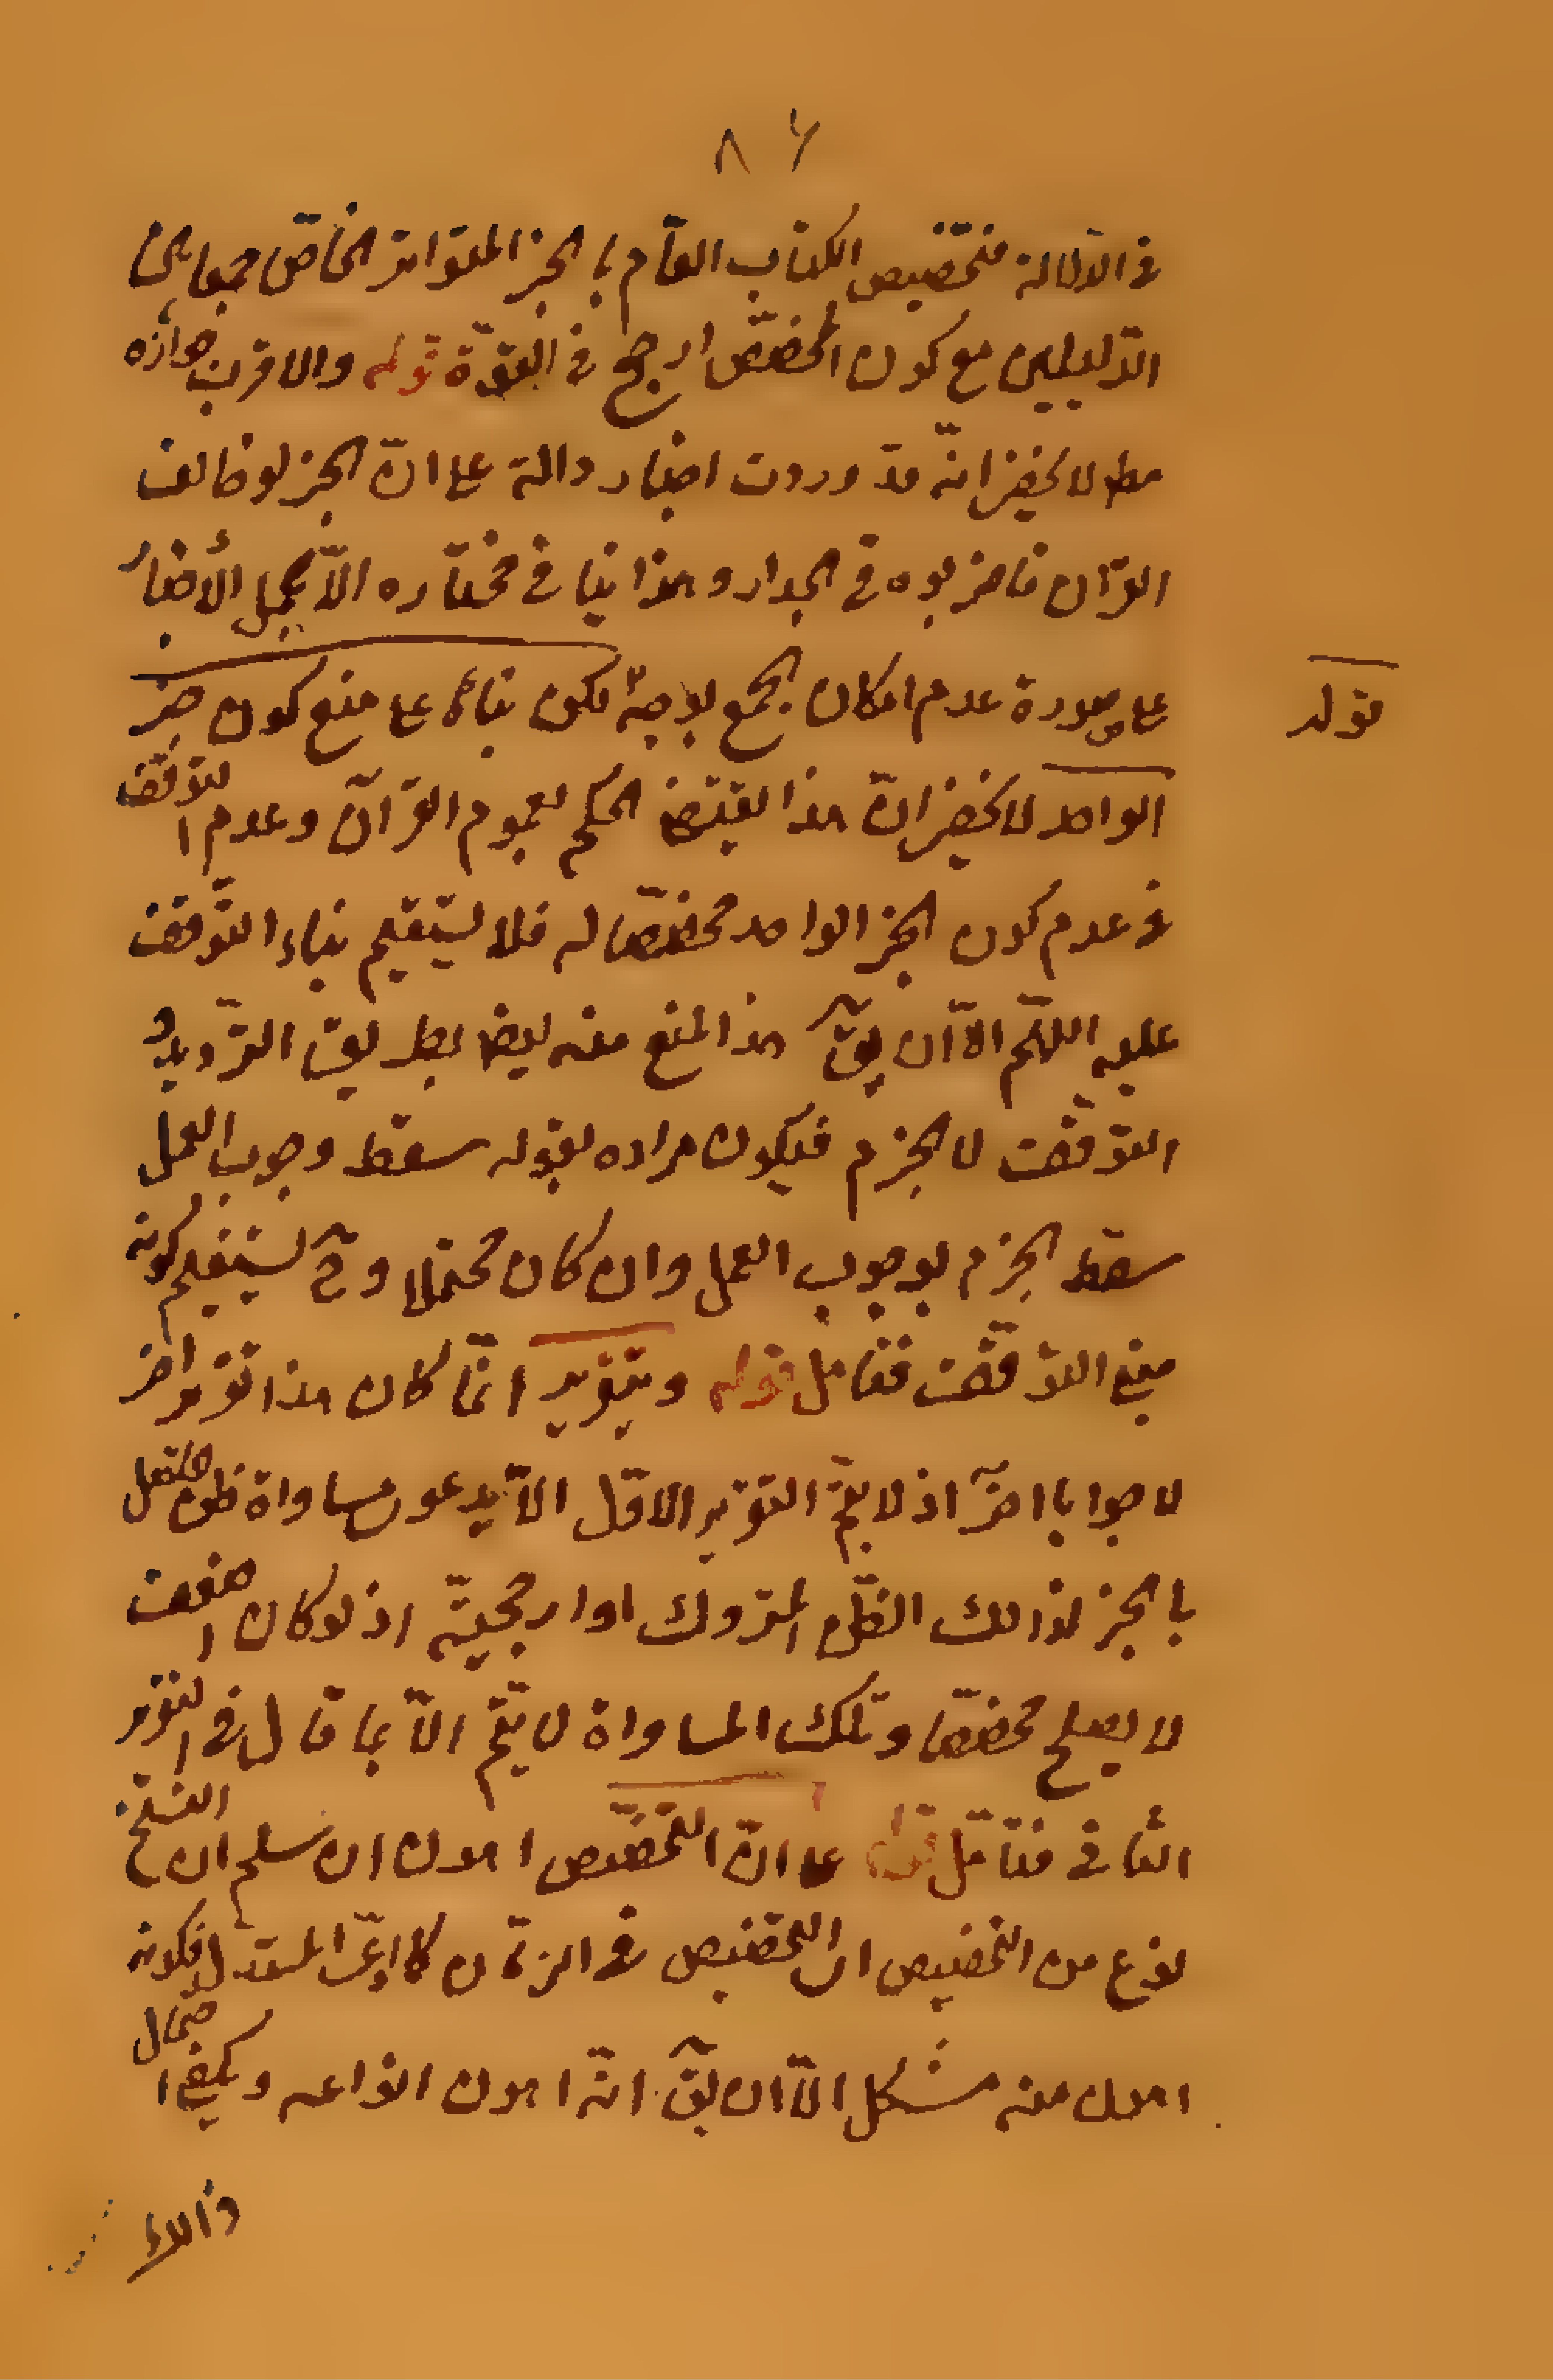 ٨٦
في الدلالة فتخصيص الكتاب العام بالخبر المتواتر الخاص جمعا بين
الدليلين مع كون المخصّص ارجح في القوّة قوله والاقرب جوازه
مط لا يخفى انّه قد وردت اخبار دالة على انّ الخبر لو خالف
القرآن فاضربوه في الجدار وهذا ينافي مختاره الّا بحمل الأخبار
على صورة عدم امكان الجمع بوجه يكون بناءً على منع كون خبر
قوله
الواحد لا يخفى انّ هذا يقتضي الحكم بعموم القرآن وعدم التوقّف
في عدم كون الخبر الواحد مخصّصا له فلا يستقيم بناء التوقّف
عليه اللهّم الّا ان يقّ هذا المنع منه ايضا بطريق الترديد و
التوقّف لا الجزم فيكون مراده بقوله سقط وجوب العمل
سقط الجزم بوجوب العمل وان كان محتملا وح يستقيم كونه
منع التوقّف فتامل قوله وبتقرير انّما كان هذا تقرير اخر
لا جوابا اخر اذ لا يتمّ التقرير الاوّل الّا بدعوى مساواة ظنّ العمل
بالخبر لذلك الظنّ المتروك او ارجحيّة اذ لو كان اضعف
لا يصلح مخصّصا وتلك المساواة لا يتمّ الّا بما قال في التقرير
الثاني فتامّل قوله على انّ التخصيص اهون ان سلم ان النسخ
نوع من التخصيص اي التخصيص في الزمان كما ادعى المستدل فكونه
اهون منه مشكل الّا ان يقّ انّه اهون انواعه ويكفي احتمال